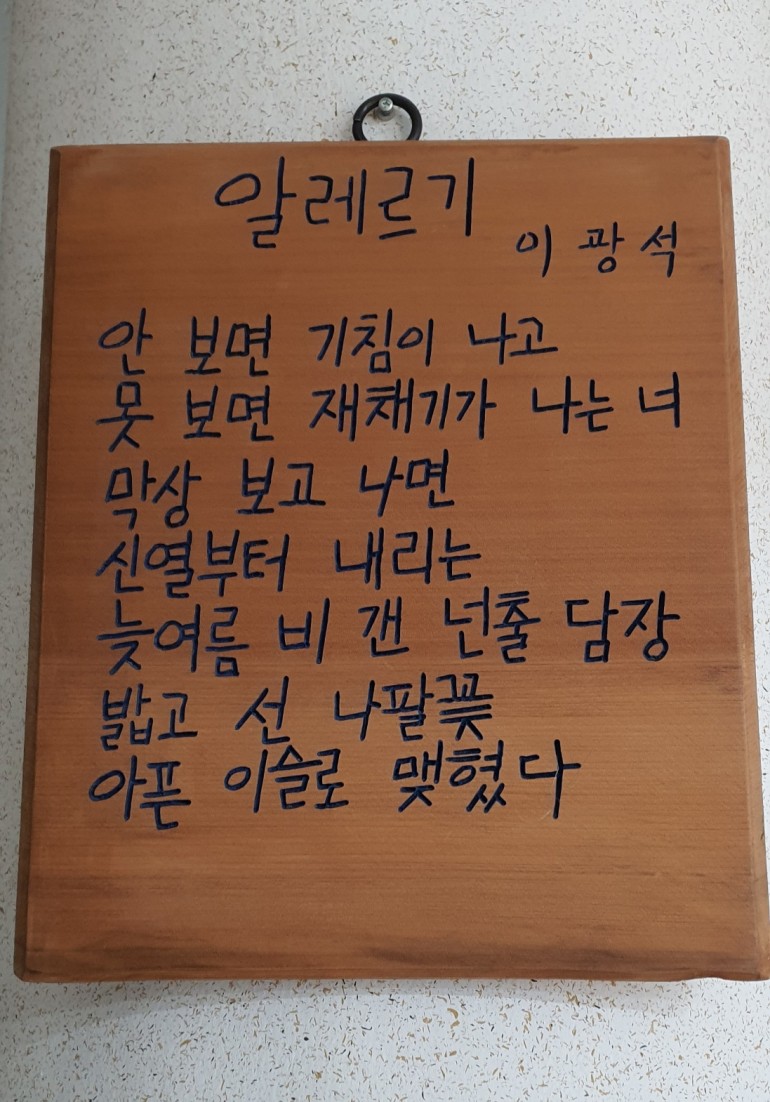 알레르기
이광석
안 보면 기침이 나고
못 보면 재채기가 나는 너
막상 보고 나면
신열부터 내리는
늦여름 비 갠 넌출 담장
밟고 선 나팔꽃
아픈 이슬로 맺혔다